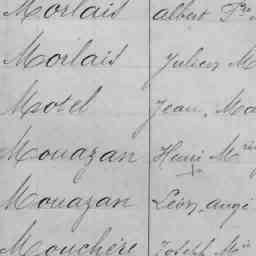 Morlais albert Frs
Morlais Julien M
Motel Jean, Ma
Mouazan Henri Mrie
Mouazan Léon, ange
Mouchère Joseph Mie